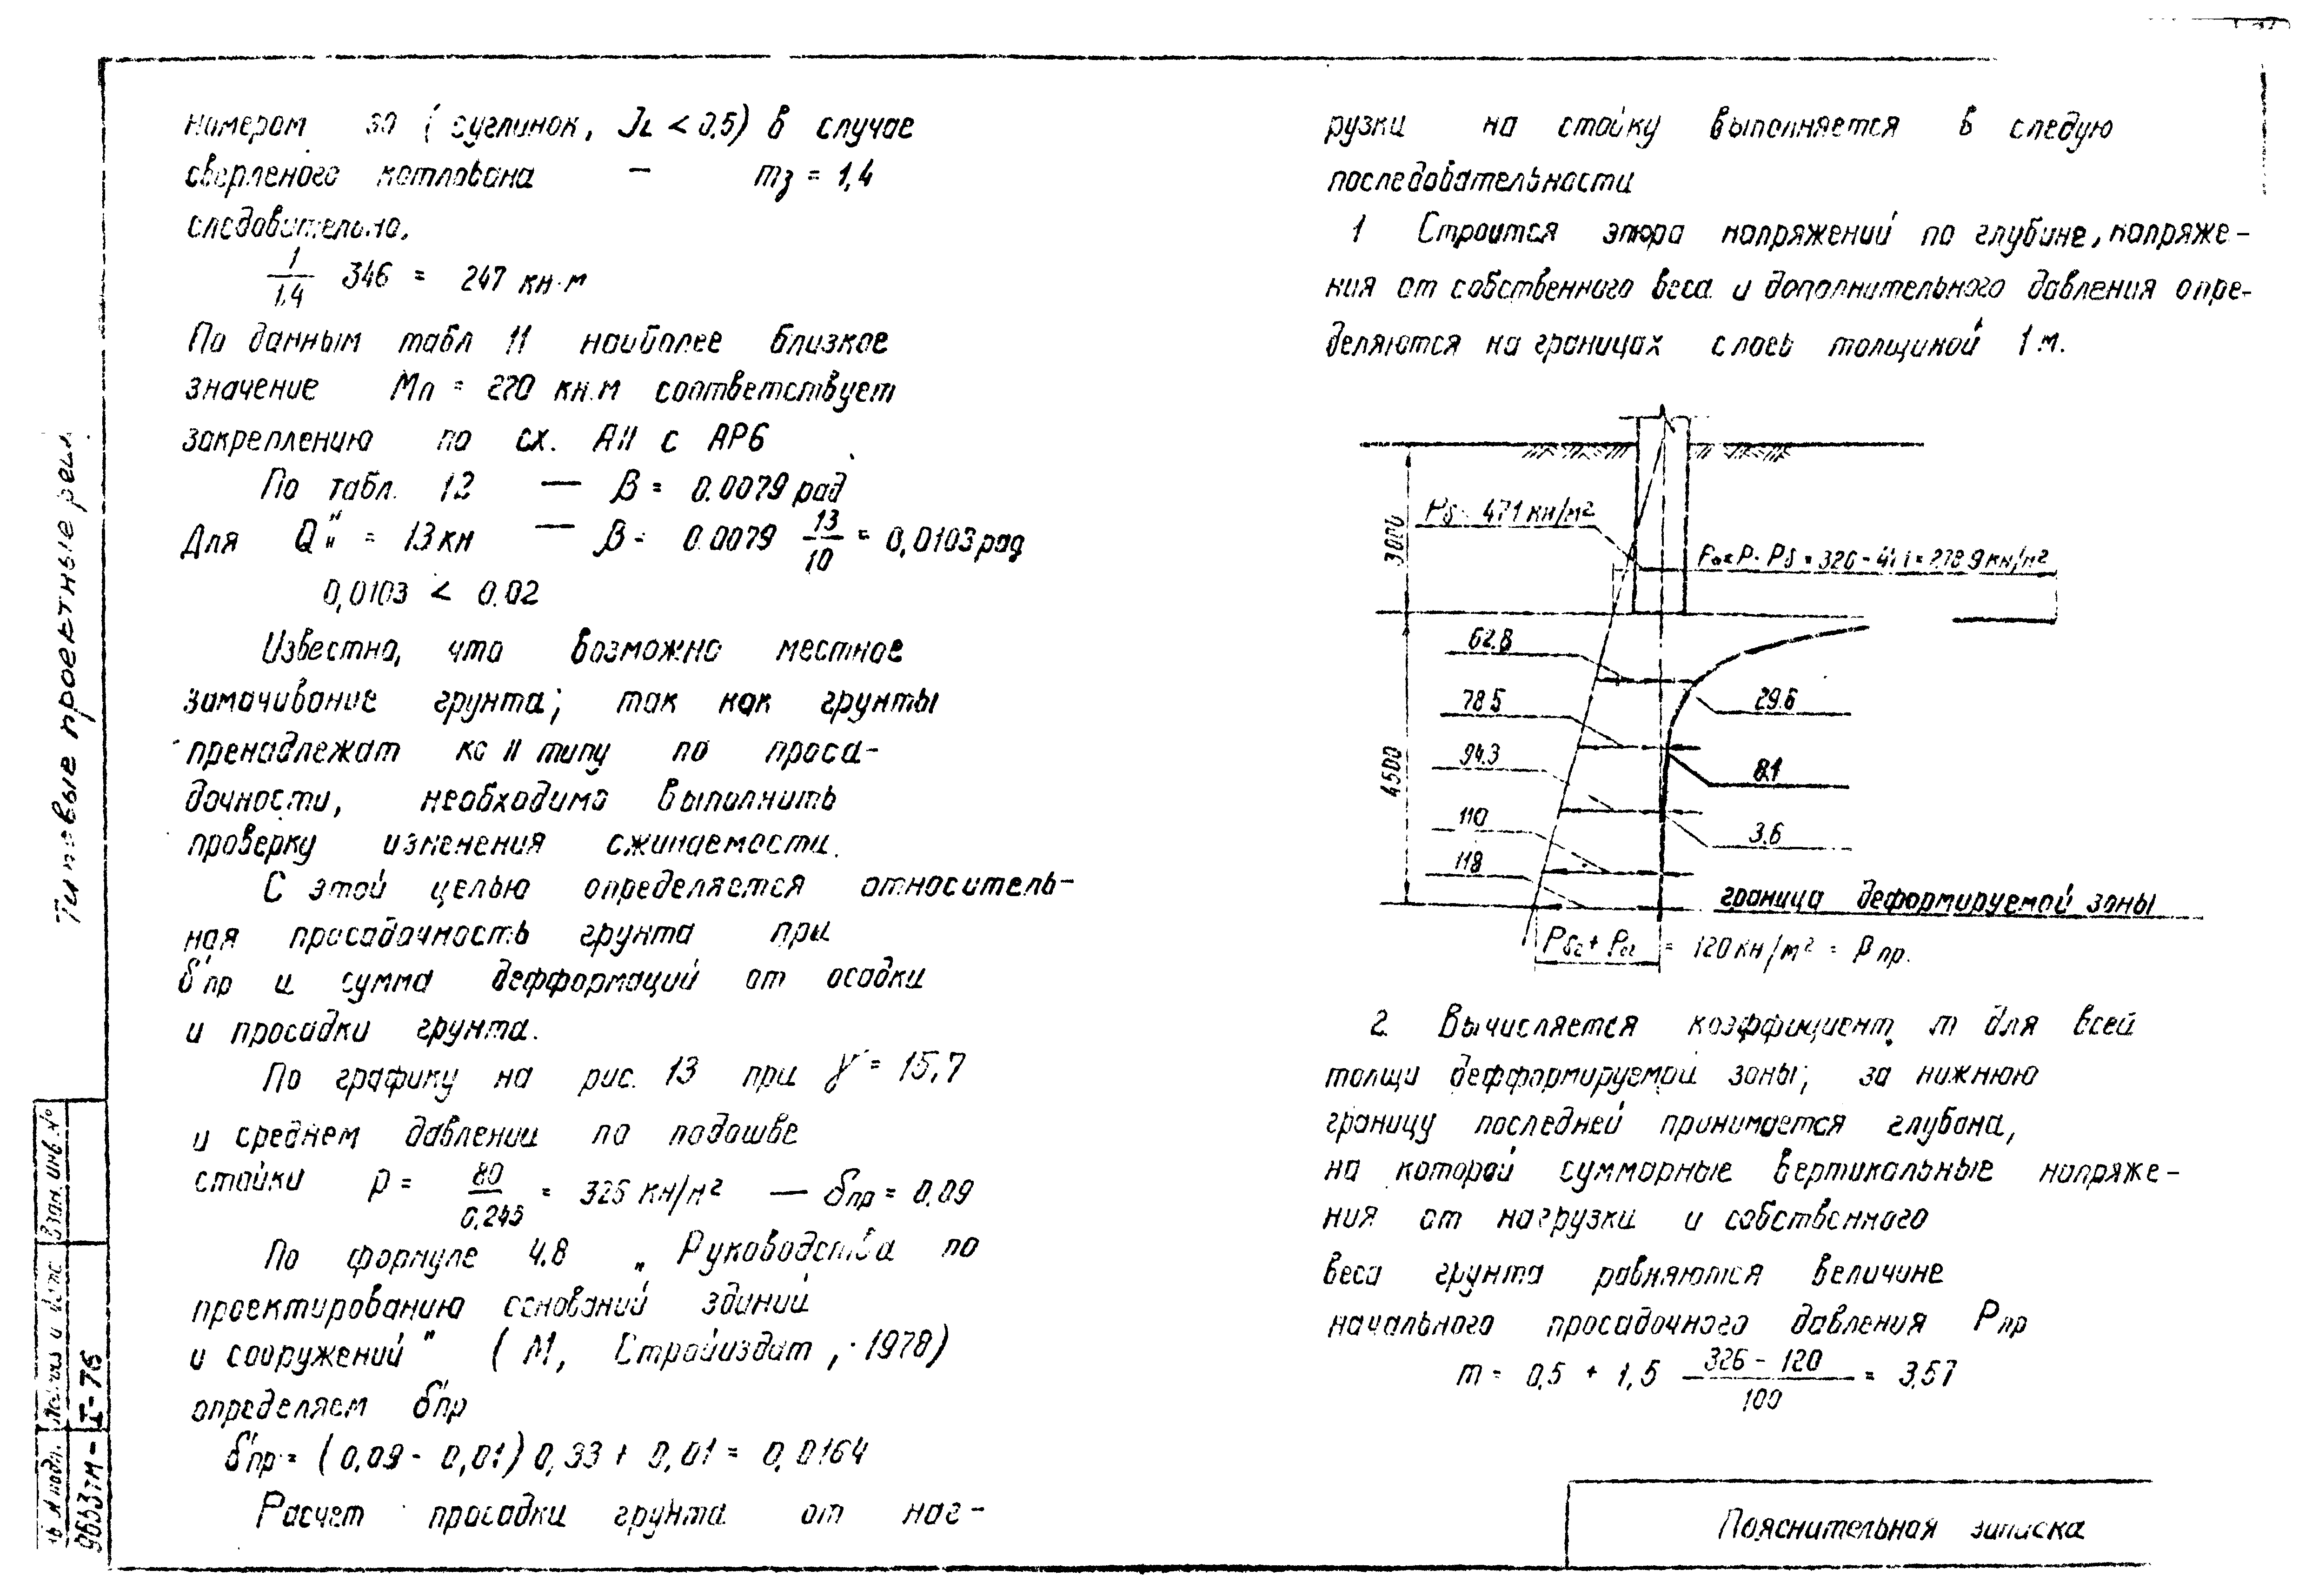 номером 30 (суглинок, JL < 0,5) в случае
сверленого котлована — m₃ = 1,4
следовательно,
1/1.4 346 = 247 кн·м
По данным табл 11 наиболее близкое
значение Мп = 270 кн.м соответствует
закреплению по сх. АII с АР6
По табл. 12 — β = 0.0079 рад
Для Qᴴн = 13 кн — β = 0.0079 13/10 = 0,0103 рад
0,0103 < 0.02
Известно, что возможно местное
замачивание грунта; так как грунты
пренадлежат ко II типу по проса-
дочности, необходимо выполнить
проверку изменения сжимаемости.
С этой целью определяется относитель-
ная просадочность грунта при
δ'пр и сумма дефформаций от осадки
и просадки грунта.
По графику на рис. 13 при γ = 15,7
и среднем давлении по подошве
стойки р = 80/0,245 = 326 кн/м² — δпр = 0.09
По формуле 4.8 „Руководства по
проектированию оснований зданий
и сооружений" (М, Стройиздат, 1978)
определяем δ'пр
δ'пр = (0,09 - 0,01) 0,33 + 0,01 = 0,0164
Расчет просадки грунта от наг-
рузки на стойку выполняется в следую
последовательности
1 Строится эпюра напряжений по глубине, напряже-
ния от собственного веса и дополнительного давления опре-
деляются на границах слоев толщиной 1 м.
3000
Рб = 47.1 кн/м²
Р₀ = Р - Рб = 326 - 47.1 = 278.9 кн/м²
62.8
29.6
78.5
4500
94.3
8.1
110
3.6
118
граница дефформируемой зоны
Рбг + Рог = 120 кн/м² = Рпр.
2. Вычисляется коэффициент m для всей
толщи дефформируемой зоны; за нижнюю
границу последней принимается глубина,
на которой суммарные вертикальные напряже-
ния от нагрузки и собственного
веса грунта равняются величине
начального просадочного давления Рпр
m = 0,5 + 1,5 326 - 120/100 = 3,57
Пояснительная записка
Типовые проектные реш
Взам. инв. №
Подпись и дата
Инв. № подл.
9663тм-I-76